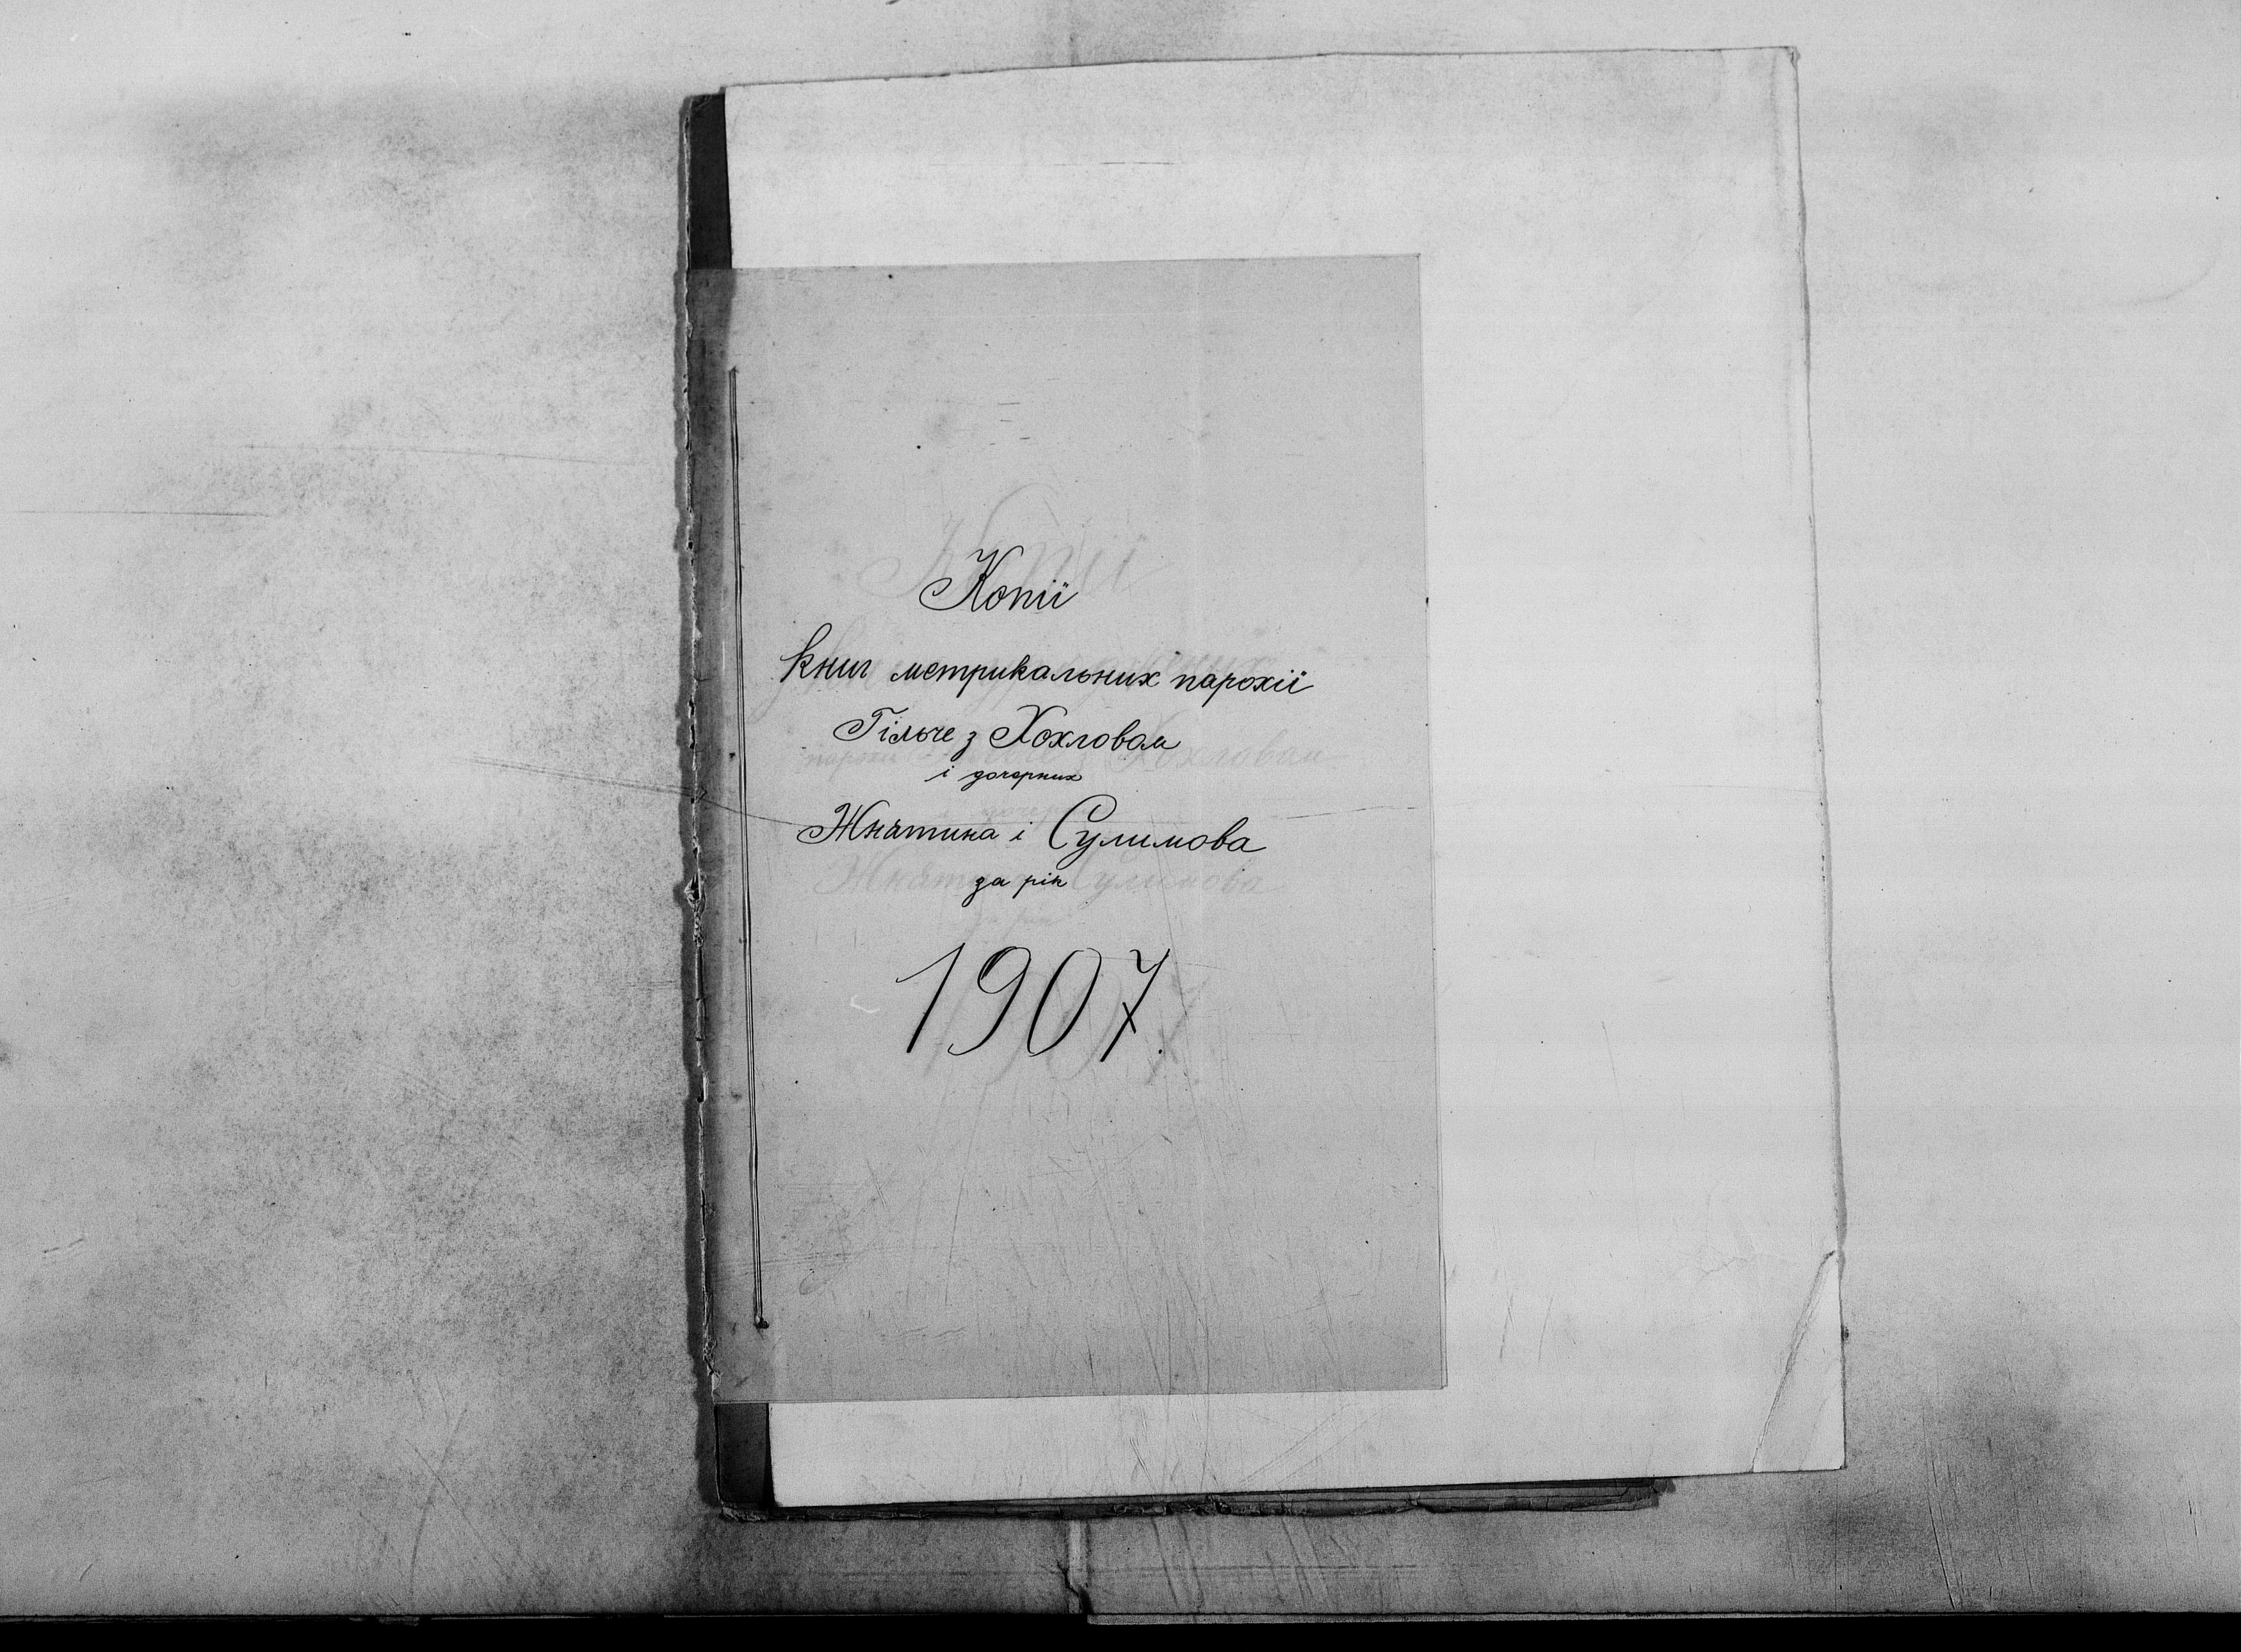 Копії
книг метрикальних парохії
Гільче з Хохловом
і дочерних
Жнятина і Сулимова
за рік
1907.